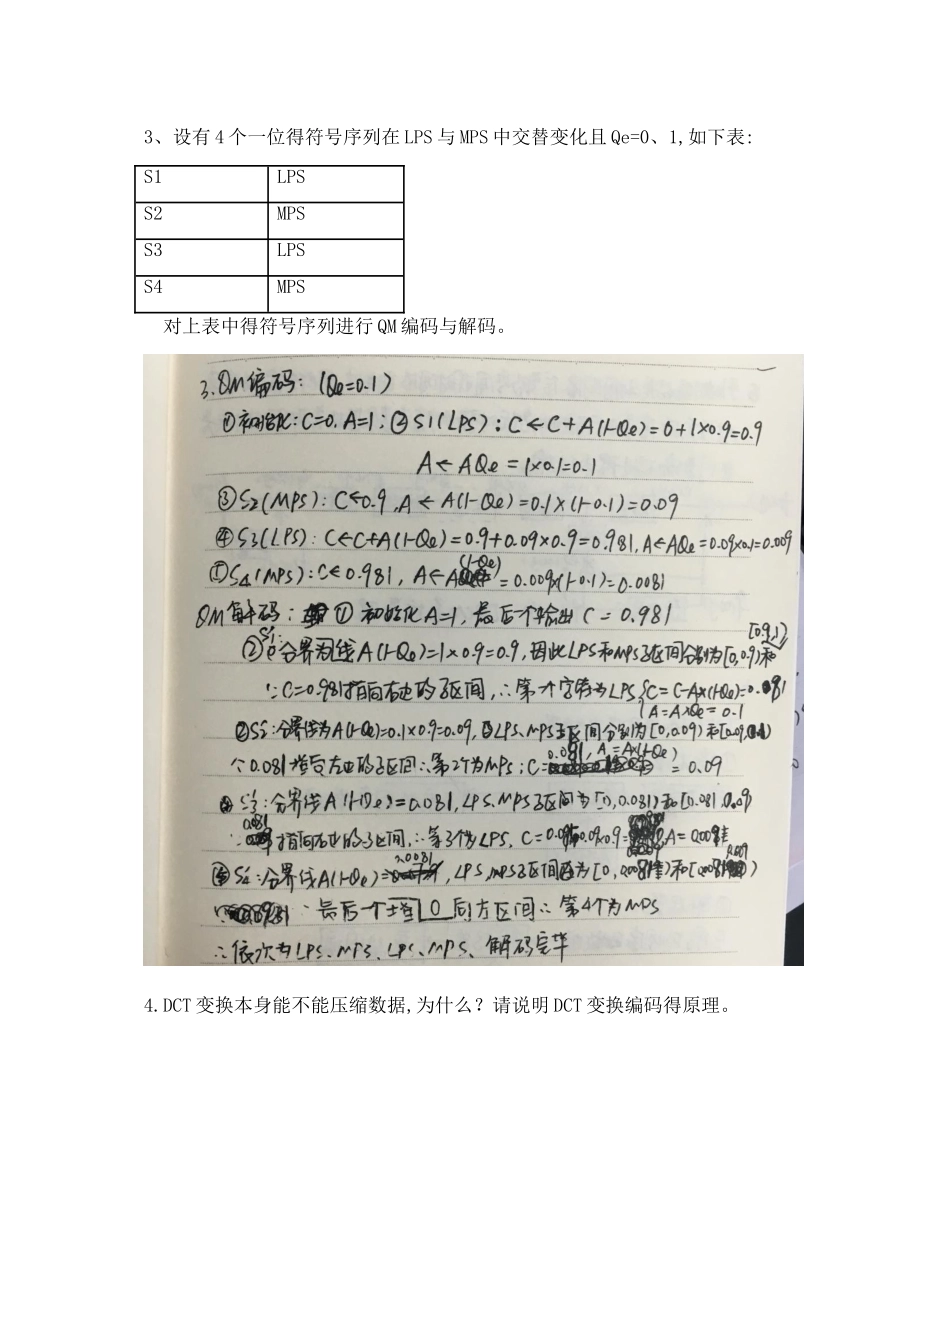 3、设有4个一位得符号序列在LPS与MPS中交替变化且Qe=0、1,如下表:
S1 LPS
S2 MPS
S3 LPS
S4 MPS
对上表中得符号序列进行QM编码与解码。
3.QM编码:(Qe=0.1)
①初始化:C=0.A=1;②S1(LPS):C←C+A(1-Qe)=0+1×0.9=0.9
A←AQe=1×0.1=0.1
③S2(MPS):C←0.9,A←A(1-Qe)=0.1×(1-0.1)=0.09
④S3(LPS):C←C+A(1-Qe)=0.9+0.09×0.9=0.981,A←AQe=0.09×0.1=0.009
S4(MPS):C←0.981,A←A(1-Qe)=0.009×(1-0.1)=0.0081
QM解码:①初始化A=1,最后一个输出C=0.981
②S1:分界线A(1-Qe)=1×0.9=0.9,因此LPS和MPS子区间分别为[0,0.9)和[0.9,1]
∵C=0.981指向右边的子区间,∴第一个字符为LPS{C=C-A×(1-Qe)=0.081
A=A×Qe=0.1
S2:分界线为A(1-Qe)=0.1×0.9=0.09,LPS、MPS子区间分别为[0,0.09)和[0.09,0.1)
0.081指向左边的子区间∴第2个为MPS;C=0.081,A=A×(1-Qe)=0.09
S3:分界线A(1-Qe)=0.081,LPS、MPS子区间为[0,0.081)和[0.081,0.09)
∵0.081指向右边的子区间,∴第3个为LPS,C=
S4:分界线A(1-Qe)=0.0081,LPS,MPS子区间为[0,0.0081)和[0.0081,0.009)
∵最后一个 0 向左区间∴第4个为MPS
∴依次为LPS、MPS、LPS、MPS、解码完毕
4.DCT变换本身能不能压缩数据,为什么？请说明DCT变换编码得原理。